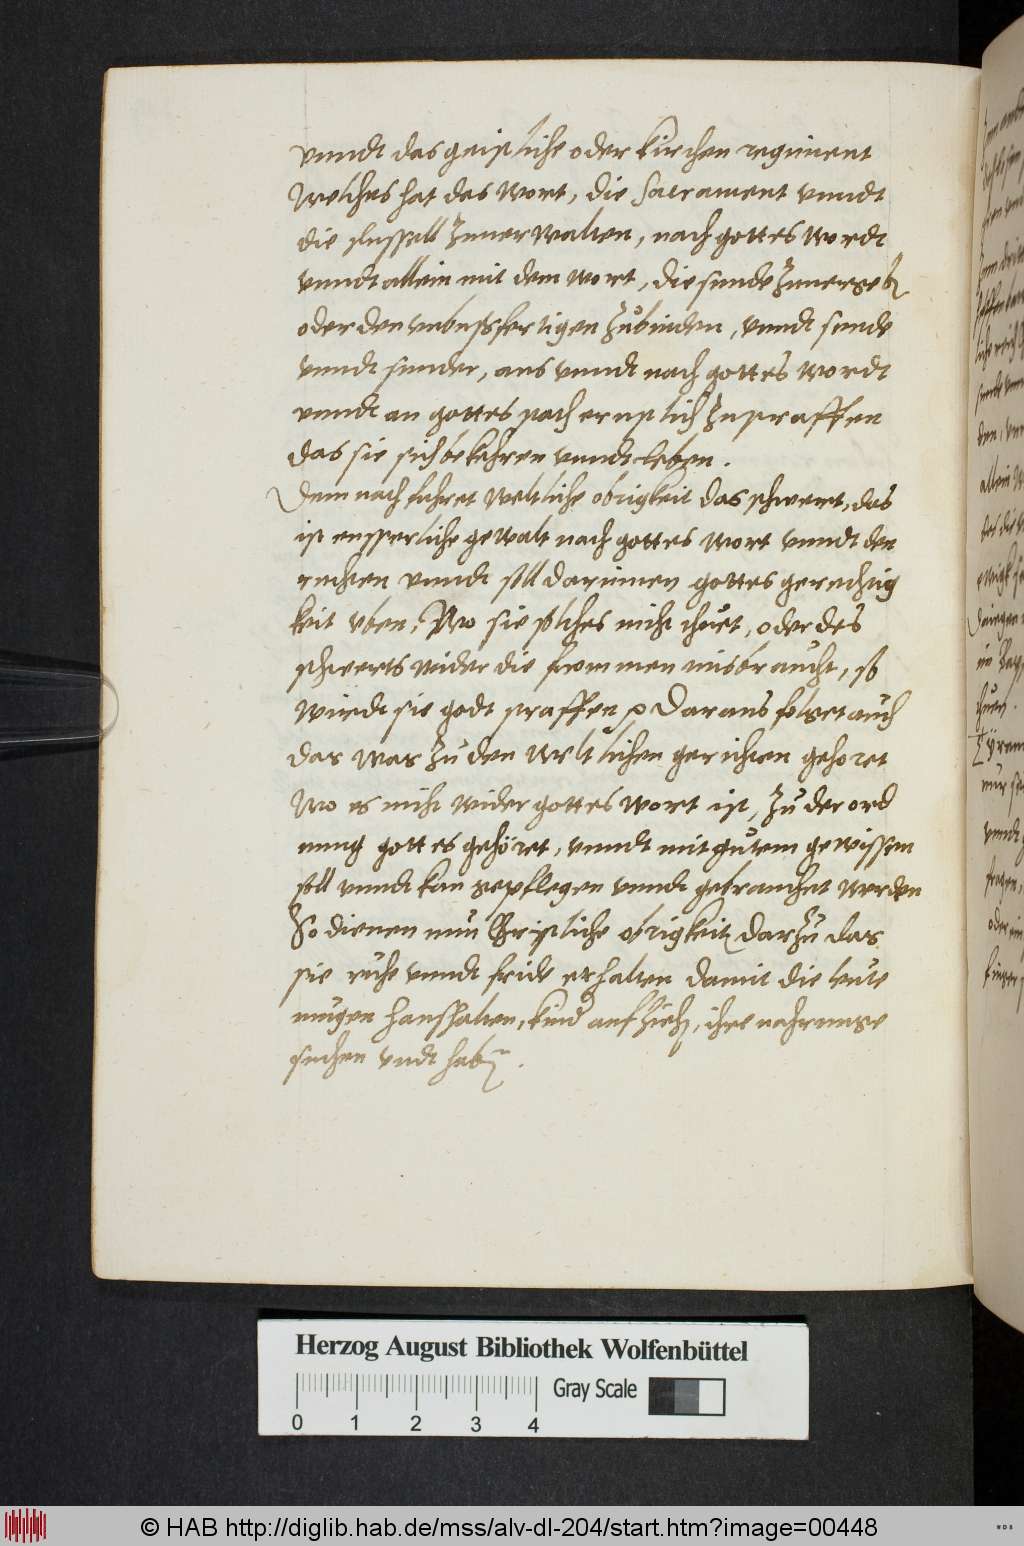 vnndt das geistliche oder kirchen regiment
Welches hat das Wort, die Sacrament vnndt
die slussell Zuuerwalten, nach gottes wordt
vnndt allein mit dem wort, die sunde Zuuergeb[en]
oder den vnbussfertigen Zubinden, vnndt sunde
vnndt sunder, aus vnndt nach gottes wordt
vnndt an gottes stadt ernstlich Zustraffen
das sie sich bekehren vnndt leben.
Demnach fuhret Weltliche obrigkeit das schwert, das
ist eusserliche gewalt nach gottes wort vnndt den
rechten vnndt soll darinnen gottes gerechtig
keit vben, Wo sie solches nicht thuet, oder des
schwerts wider die frommen misbraucht, so
wurdt sie godt straffen Daraus folget auch
das was Zu den weltlichen gerichten gehoret
Wo es nicht wider gottes wort ist, Zu der ord
nung gottes gehöret, vnndt mit gutem gewissen
soll vnndt kan gepflegen vnndt gebrauchet werden
So dienen nun Christliche obrigkeit darzu das
sie ruhe vnndt fride erhalten damit die leute
mugen haushalten, kind aufzieh[en], ihre nahrunge
suchen vndt hab[en].
Herzog August Bibliothek Wolfenbüttel
Gray Scale
0 1 2 3 4
© HAB http://diglib.hab.de/mss/alv-dl-204/start.htm?image=00448